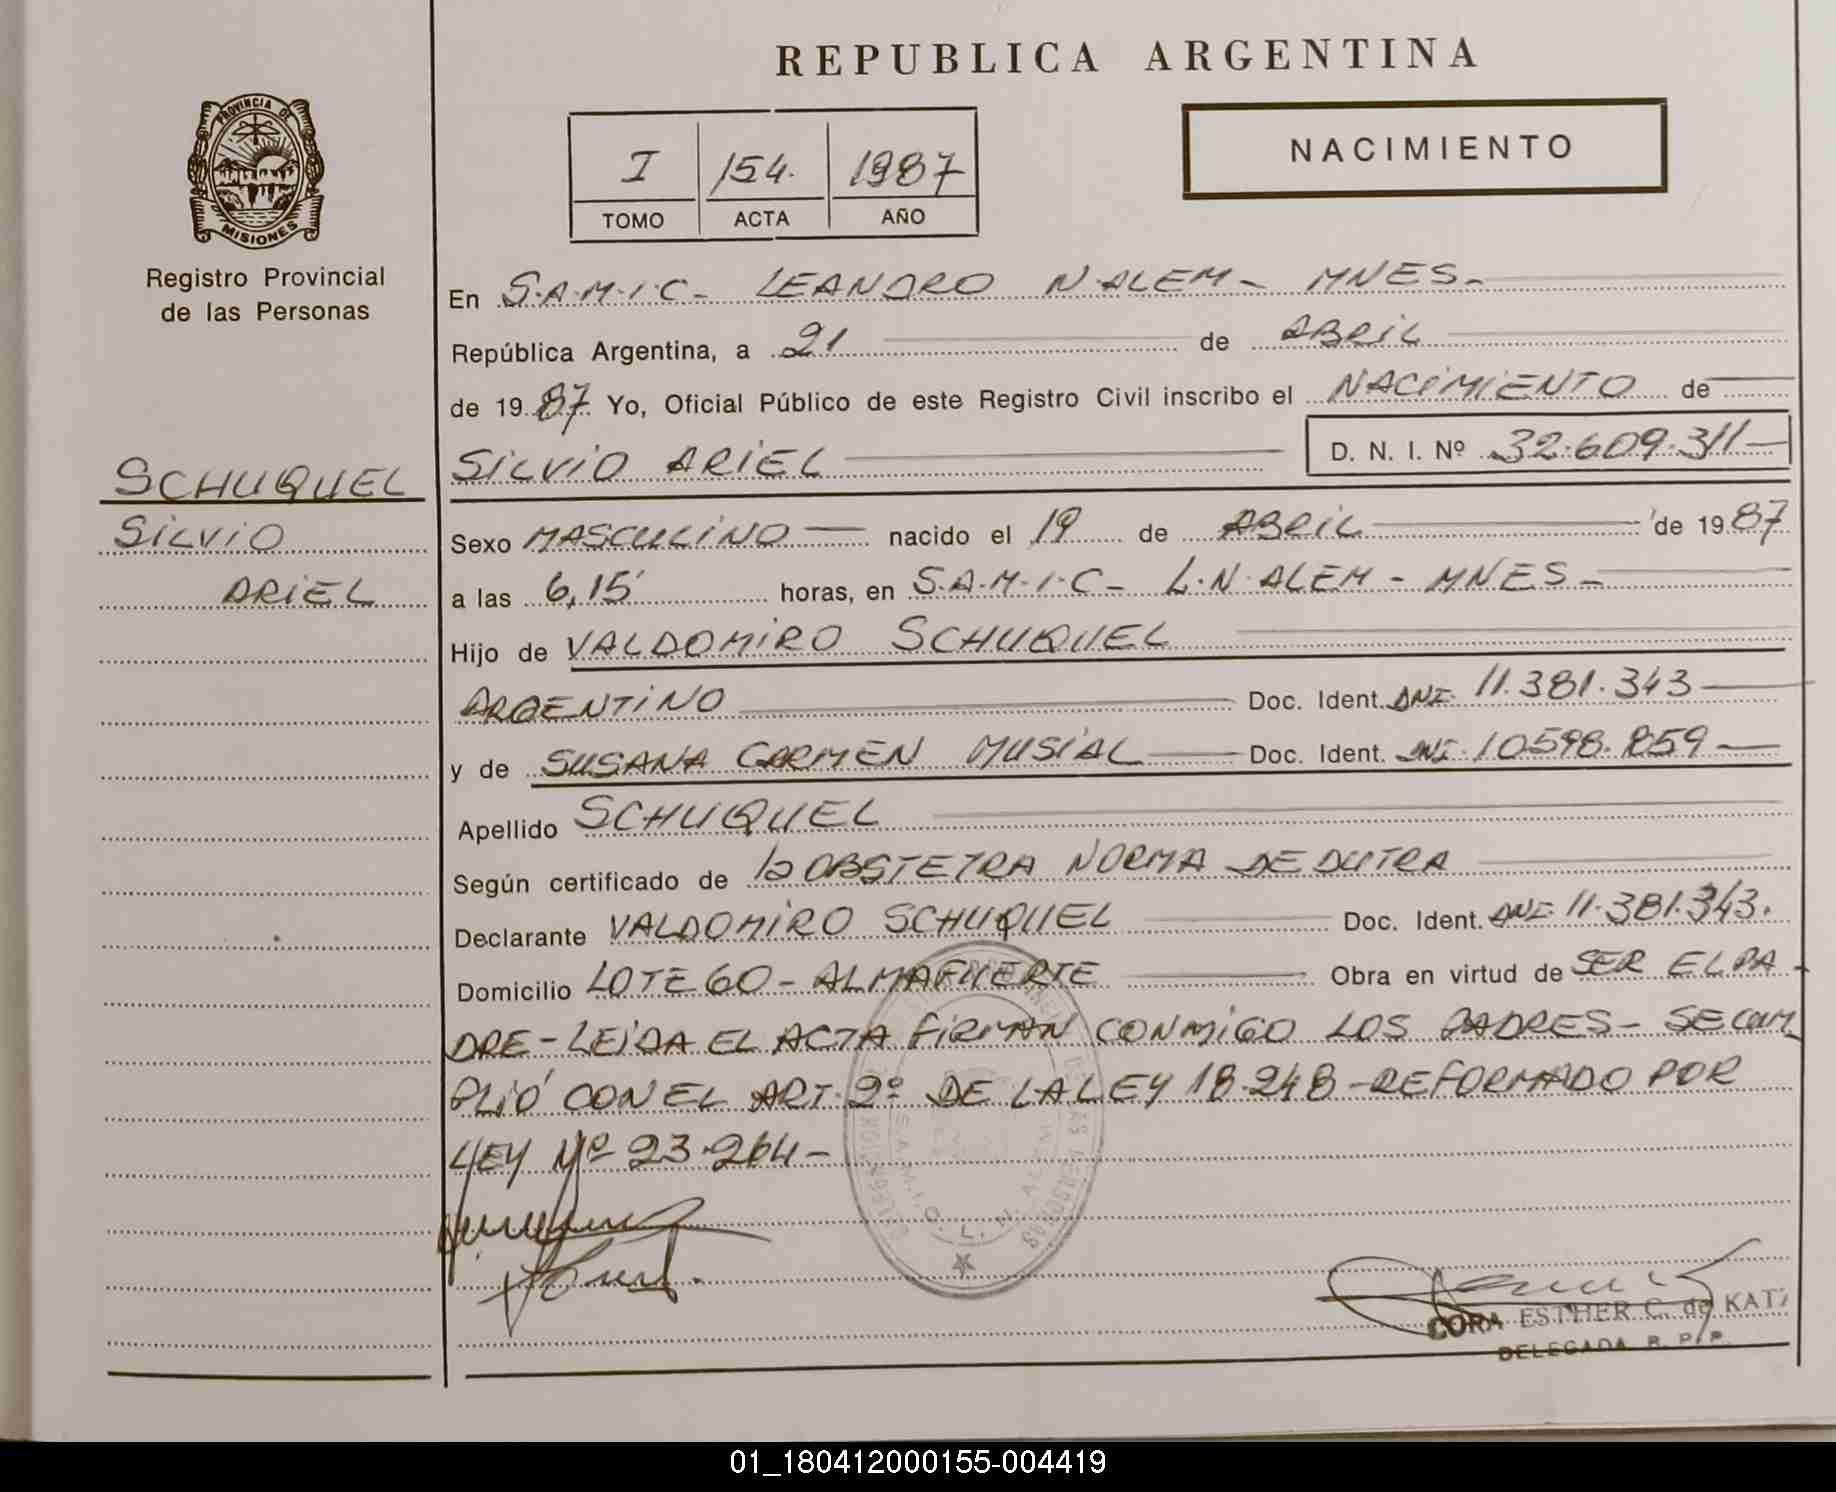 REPUBLICA ARGENTINA
PROVINCIA DE
MISIONES
Registro Provincial
de las Personas
I 154. 1987
TOMO ACTA AÑO
NACIMIENTO
En S.A.M.I.C- LEANDRO N.ALEM- MNES-
República Argentina, a 21 de ABRIL
de 1987 Yo, Oficial Público de este Registro Civil inscribo el NACIMIENTO de
SILVIO ARIEL D. N. I. Nº 32.609.311-
SCHUQUEL
SILVIO
ARIEL
Sexo MASCULINO- nacido el 19 de ABRIL de 1987
a las 6,15' horas, en S.A.M.I.C- L.N.ALEM- MNES-
Hijo de VALDOMIRO SCHUQUEL
ARGENTINO Doc. Ident. DNI. 11.381.343-
y de SUSANA CARMEN MUSIAL- Doc. Ident. DNI. 10.598.859-
Apellido SCHUQUEL
Según certificado de la OBSTETRA NORMA DE DUTRA
Declarante VALDOMIRO SCHUQUEL Doc. Ident. DNI. 11.381.343.
Domicilio LOTE 60- ALMAFUERTE Obra en virtud de SER EL PA-
DRE-LEIDA EL ACTA FIRMAN CONMIGO LOS PADRES- SE CUM-
PLIÓ CON EL ART. 2º DE LA LEY 18.248-REFORMADO POR
LEY Nº 23.264-
S.A.M.I.C. L.N. ALEM
CORA ESTHER C. de KATZ
DELEGADA R. P. P.
01_180412000155-004419